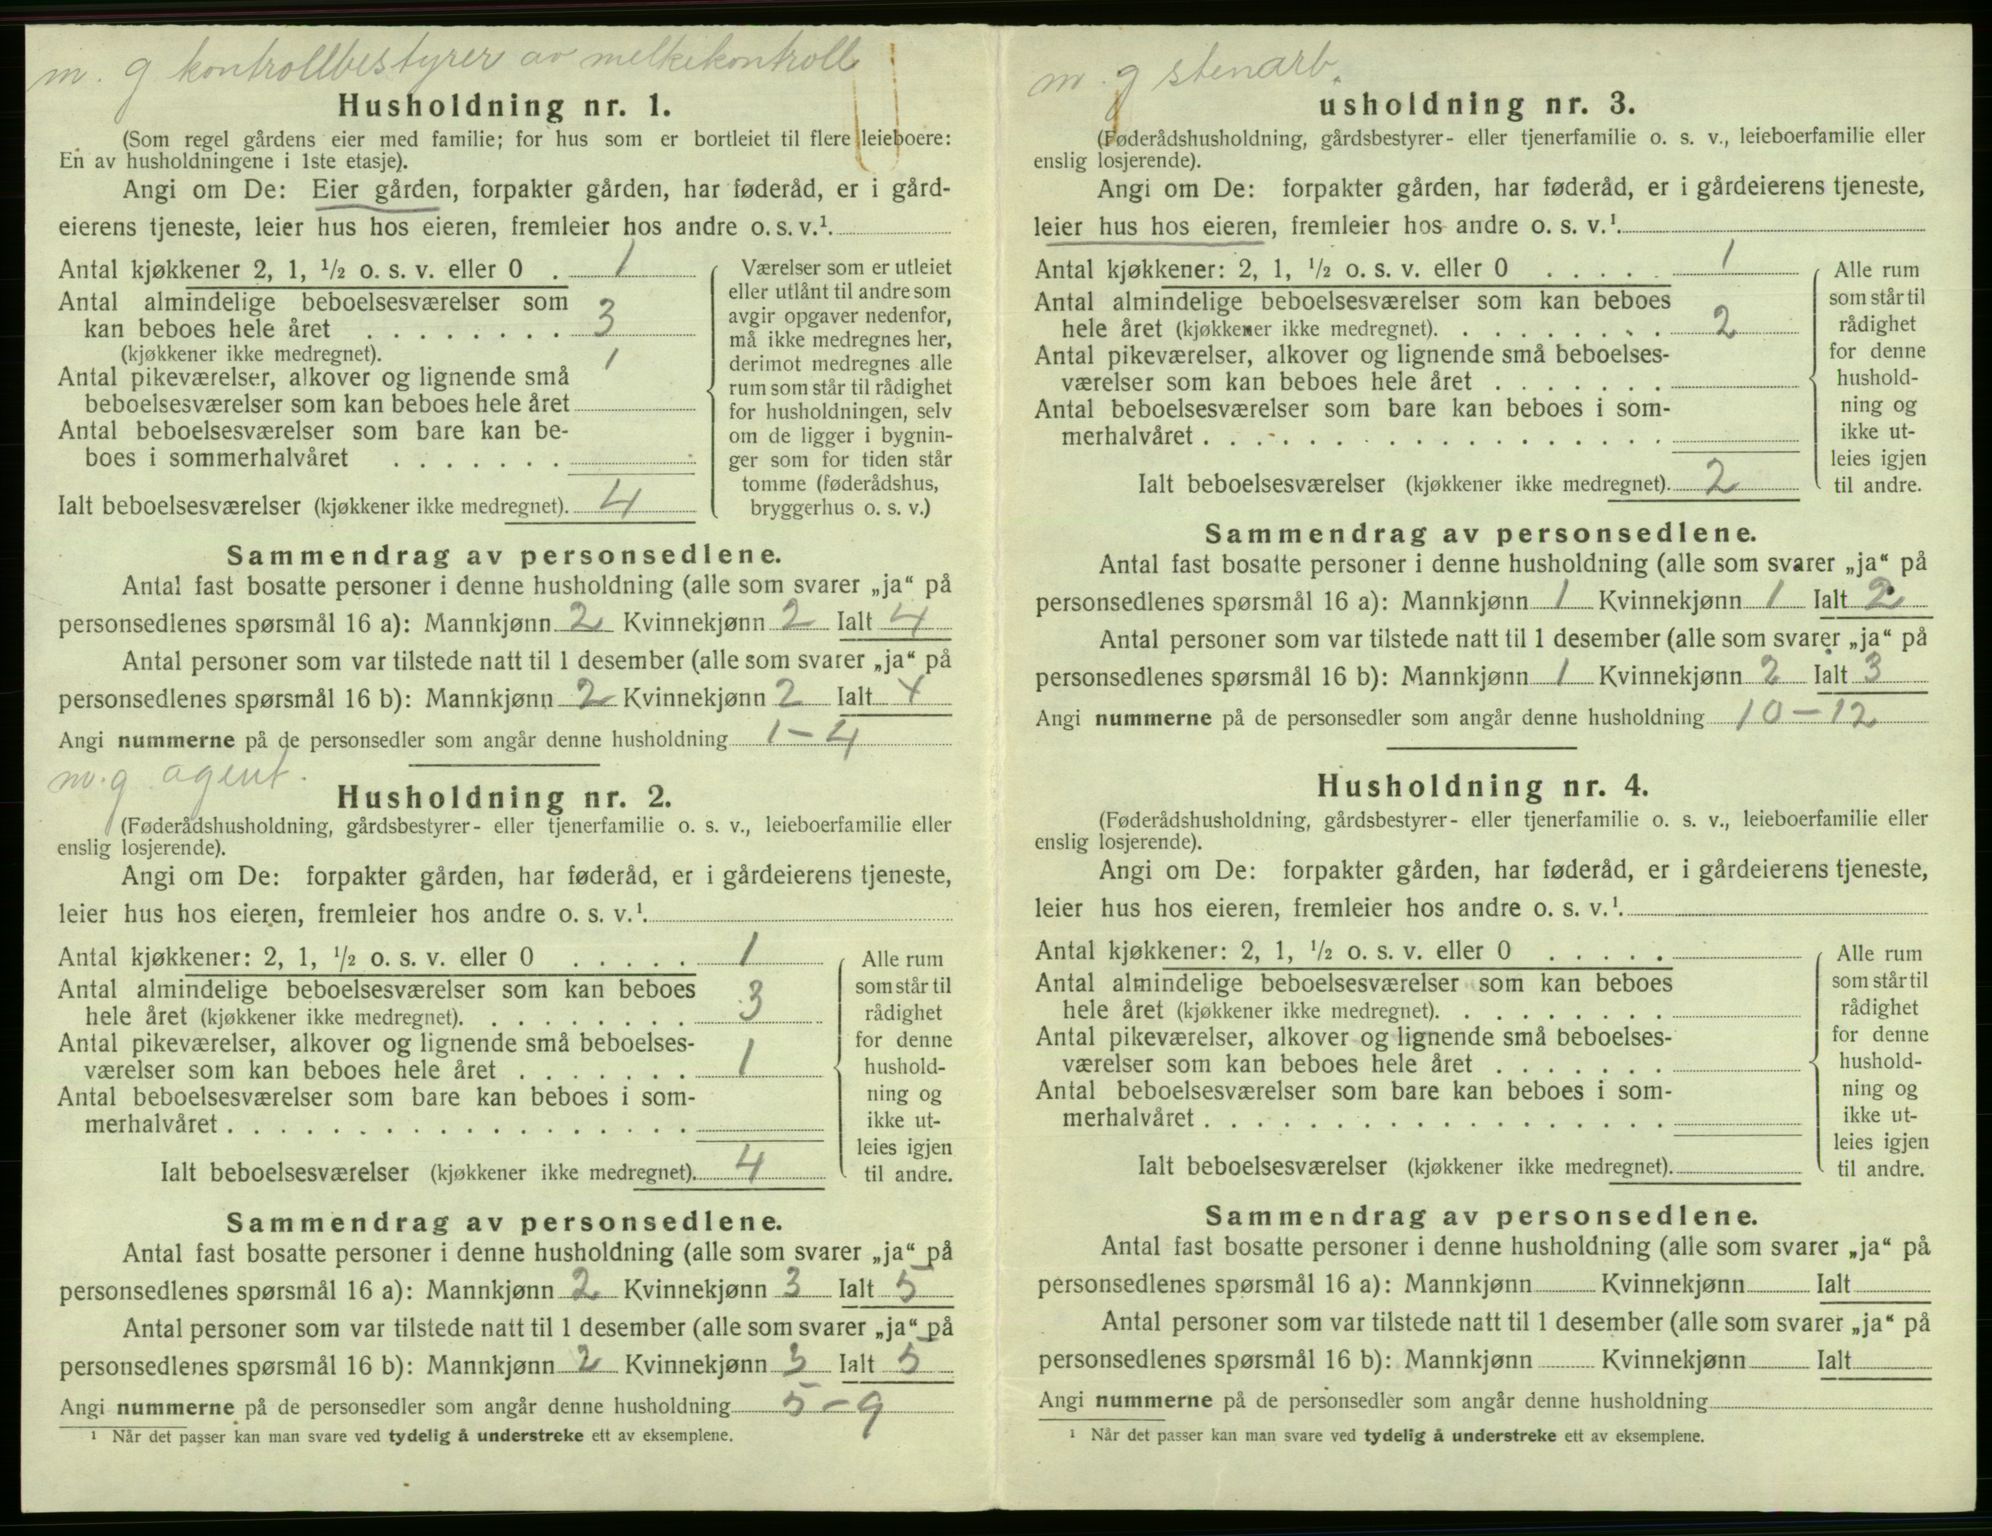 m. g kontrollbestyrer av melkekontroll
Husholdning nr. 1.
(Som regel gårdens eier med familie; for hus som er bortleiet til flere leieboere:
En av husholdningene i 1ste etasje).
Angi om De: Eier gården, forpakter gården, har føderåd, er i gård-
eierens tjeneste, leier hus hos eieren, fremleier hos andre o. s. v.¹.
Antal kjøkkener 2, 1, ½ o. s. v. eller 0 . 1
Antal almindelige beboelsesværelser som
kan beboes hele året . . . . . . . . 3
(kjøkkener ikke medregnet). 1
Antal pikeværelser, alkover og lignende små
beboelsesværelser som kan beboes hele året
Antal beboelsesværelser som bare kan be-
boes i sommerhalvåret . . . . . . .
Ialt beboelsesværelser (kjøkkener ikke medregnet). 4
Værelser som er utleiet
eller utlånt til andre som
avgir opgaver nedenfor,
må ikke medregnes her,
derimot medregnes alle
rum som står til rådighet
for husholdningen, selv
om de ligger i bygnin-
ger som for tiden står
tomme (føderådshus,
bryggerhus o. s. v.)
Sammendrag av personsedlene.
Antal fast bosatte personer i denne husholdning (alle som svarer „ja“ på
personsedlenes spørsmål 16 a): Mannkjønn 2 Kvinnekjønn 2 Ialt 4
Antal personer som var tilstede natt til 1 desember (alle som svarer „ja“ på
personsedlenes spørsmål 16 b): Mannkjønn 2 Kvinnekjønn 2 Ialt 4
Angi nummerne på de personsedler som angår denne husholdning 1-4
m. g. agent.
Husholdning nr. 2.
(Føderådshusholdning, gårdsbestyrer- eller tjenerfamilie o. s. v., leieboerfamilie eller
enslig losjerende).
Angi om De: forpakter gården, har føderåd, er i gårdeierens tjeneste,
leier hus hos eieren, fremleier hos andre o. s. v.¹.
Antal kjøkkener: 2, 1, ½ o. s. v. eller 0 . . . . . 1
Antal almindelige beboelsesværelser som kan beboes
hele året (kjøkkener ikke medregnet). . . . . . . . . 3
Antal pikeværelser, alkover og lignende små beboelses-
værelser som kan beboes hele året . . . . . . . 1
Antal beboelsesværelser som bare kan beboes i som-
merhalvåret . . . . . . . . . . . . . . . . . .
Ialt beboelsesværelser (kjøkkener ikke medregnet). 4
Alle rum
som står til
rådighet
for denne
hushold-
ning og
ikke ut-
leies igjen
til andre.
Sammendrag av personsedlene.
Antal fast bosatte personer i denne husholdning (alle som svarer „ja“ på
personsedlenes spørsmål 16 a): Mannkjønn 2 Kvinnekjønn 3 Ialt 5
Antal personer som var tilstede natt til 1 desember (alle som svarer „ja“ på
personsedlenes spørsmål 16 b): Mannkjønn 2 Kvinnekjønn 3 Ialt 5
Angi nummerne på de personsedler som angår denne husholdning 5-9
¹ Når det passer kan man svare ved tydelig å understreke ett av eksemplene.
m. g stenarb.
usholdning nr. 3.
(Føderådshusholdning, gårdsbestyrer- eller tjenerfamilie o. s. v., leieboerfamilie eller
enslig losjerende).
Angi om De: forpakter gården, har føderåd, er i gårdeierens tjeneste,
leier hus hos eieren, fremleier hos andre o. s. v.¹.
Antal kjøkkener: 2, 1, ½ o. s. v. eller 0 . . . . . 1
Antal almindelige beboelsesværelser som kan beboes
hele året (kjøkkener ikke medregnet). . . . . . . . . 2
Antal pikeværelser, alkover og lignende små beboelses-
værelser som kan beboes hele året . . . . . . .
Antal beboelsesværelser som bare kan beboes i som-
merhalvåret . . . . . . . . . . . . . . . . . .
Ialt beboelsesværelser (kjøkkener ikke medregnet). 2
Alle rum
som står til
rådighet
for denne
hushold-
ning og
ikke ut-
leies igjen
til andre.
Sammendrag av personsedlene.
Antal fast bosatte personer i denne husholdning (alle som svarer „ja“ på
personsedlenes spørsmål 16 a): Mannkjønn 1 Kvinnekjønn 1 Ialt 2
Antal personer som var tilstede natt til 1 desember (alle som svarer „ja“ på
personsedlenes spørsmål 16 b): Mannkjønn 1 Kvinnekjønn 2 Ialt 3
Angi nummerne på de personsedler som angår denne husholdning 10-12
Husholdning nr. 4.
(Føderådshusholdning, gårdsbestyrer- eller tjenerfamilie o. s. v., leieboerfamilie eller
enslig losjerende).
Angi om De: forpakter gården, har føderåd, er i gårdeierens tjeneste,
leier hus hos eieren, fremleier hos andre o. s. v.¹.
Antal kjøkkener: 2, 1, ½ o. s. v. eller 0 . . . . .
Antal almindelige beboelsesværelser som kan beboes
hele året (kjøkkener ikke medregnet). . . . . . . . .
Antal pikeværelser, alkover og lignende små beboelses-
værelser som kan beboes hele året . . . . . . .
Antal beboelsesværelser som bare kan beboes i som-
merhalvåret . . . . . . . . . . . . . . . . . .
Ialt beboelsesværelser (kjøkkener ikke medregnet).
Alle rum
som står til
rådighet
for denne
hushold-
ning og
ikke ut-
leies igjen
til andre.
Sammendrag av personsedlene.
Antal fast bosatte personer i denne husholdning (alle som svarer „ja“ på
personsedlenes spørsmål 16 a): Mannkjønn Kvinnekjønn Ialt
Antal personer som var tilstede natt til 1 desember (alle som svarer „ja“ på
personsedlenes spørsmål 16 b): Mannkjønn Kvinnekjønn Ialt
Angi nummerne på de personsedler som angår denne husholdning
¹ Når det passer kan man svare ved tydelig å understreke ett av eksemplene.